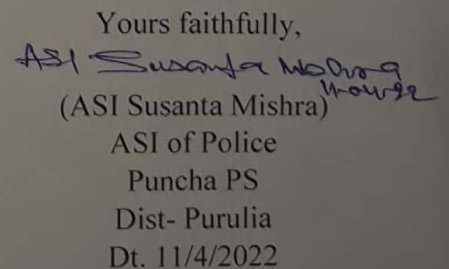 Yours faithfully,
ASI Susanta Mishra
(ASI Susanta Mishra)
ASI of Police
Puncha PS
Dist- Purulia
Dt. 11/4/2022